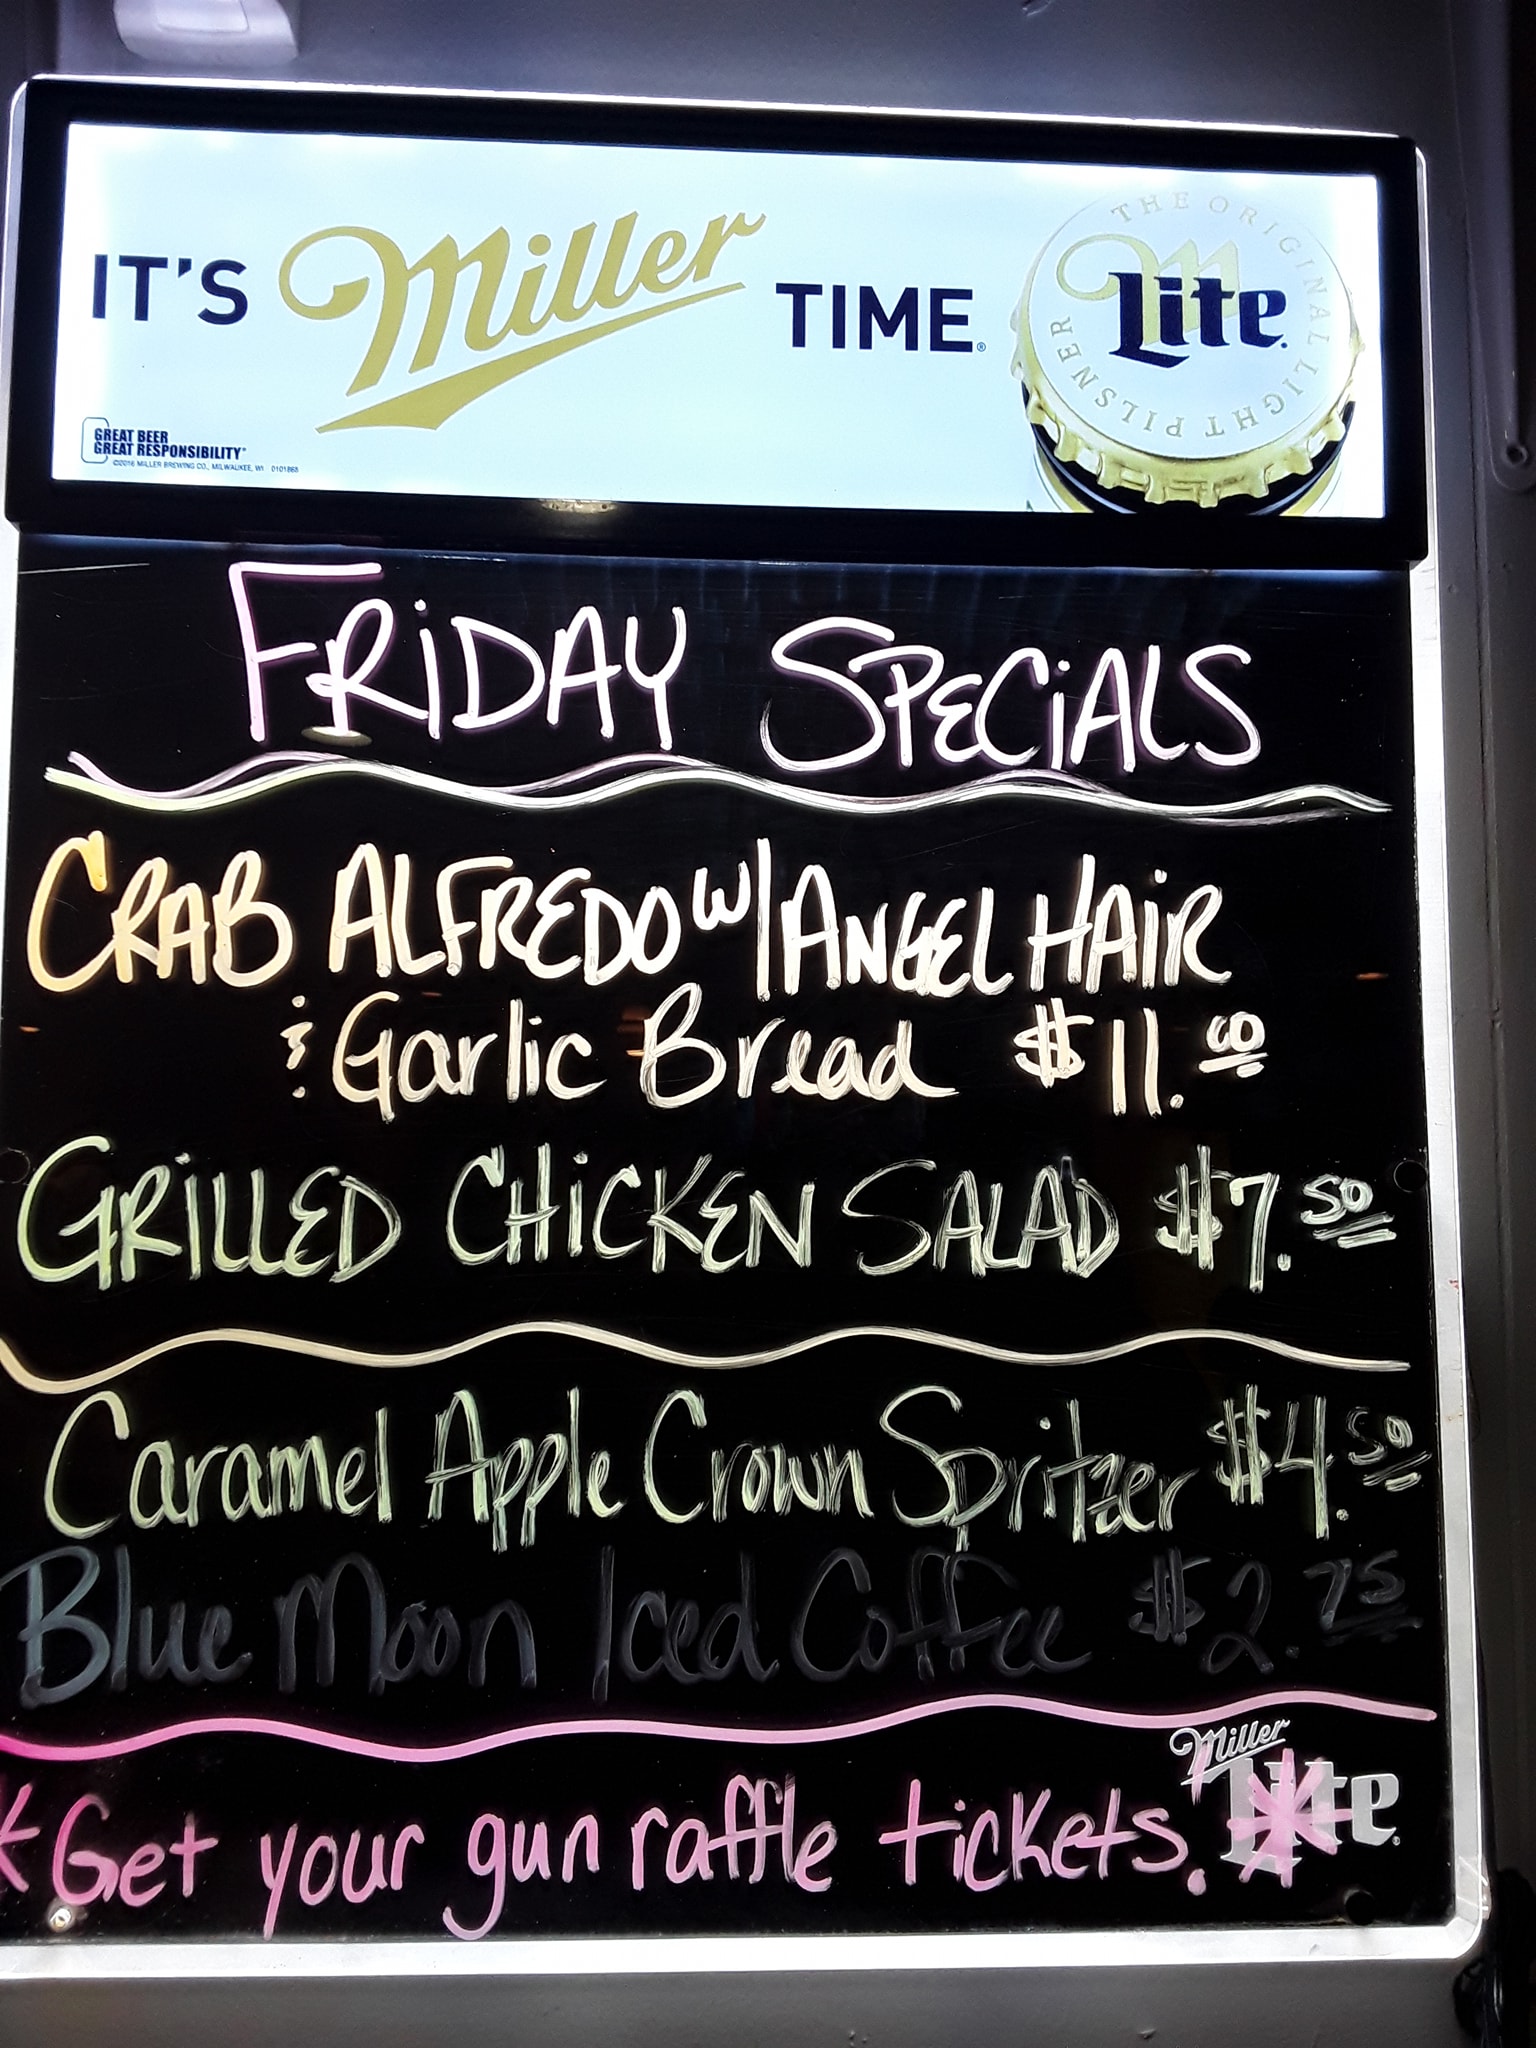 IT'S Miller TIME.®
THE ORIGINAL LIGHT PILSNER
Lite.
GREAT BEER
GREAT RESPONSIBILITY®
©2016 MILLER BREWING CO., MILWAUKEE, WI 0101868
FRiDAY SPECiALS
CRAB ALFREDO w/ ANGEL HAiR
& Garlic Bread $11.00
GRiLLED CHiCKEN SALAD $7.50
Caramel Apple Crown Spritzer $4.50
Blue Moon Iced Coffee $2.75
*Get your gun raffle tickets.*
Miller
Lite.